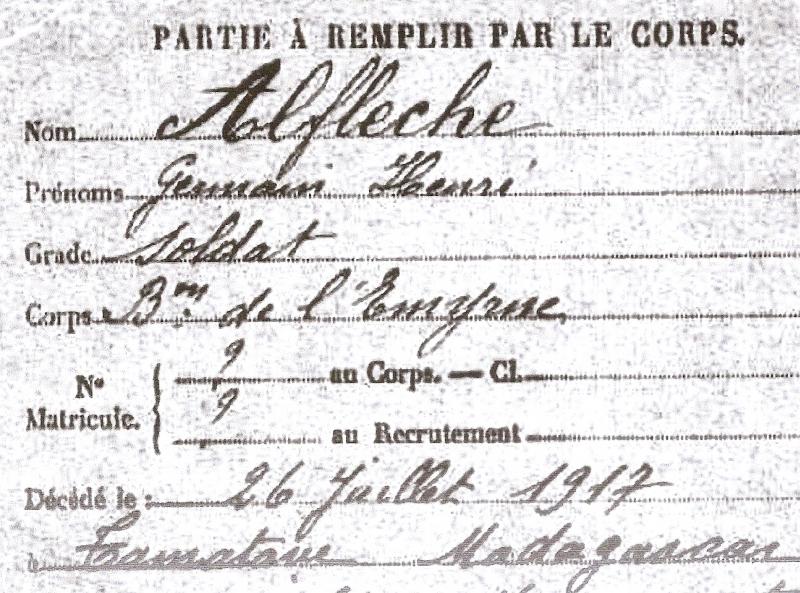 PARTIE À REMPLIR PAR LE CORPS.
Nom Alfleche
Prénoms Germain Henri
Grade soldat
Corps Bon de l'Emyrne
N° Matricule. { 9 au Corps. — Cl.
9 au Recrutement
Décédé le : 26 Juillet 1917
à Tamatave Madagascar